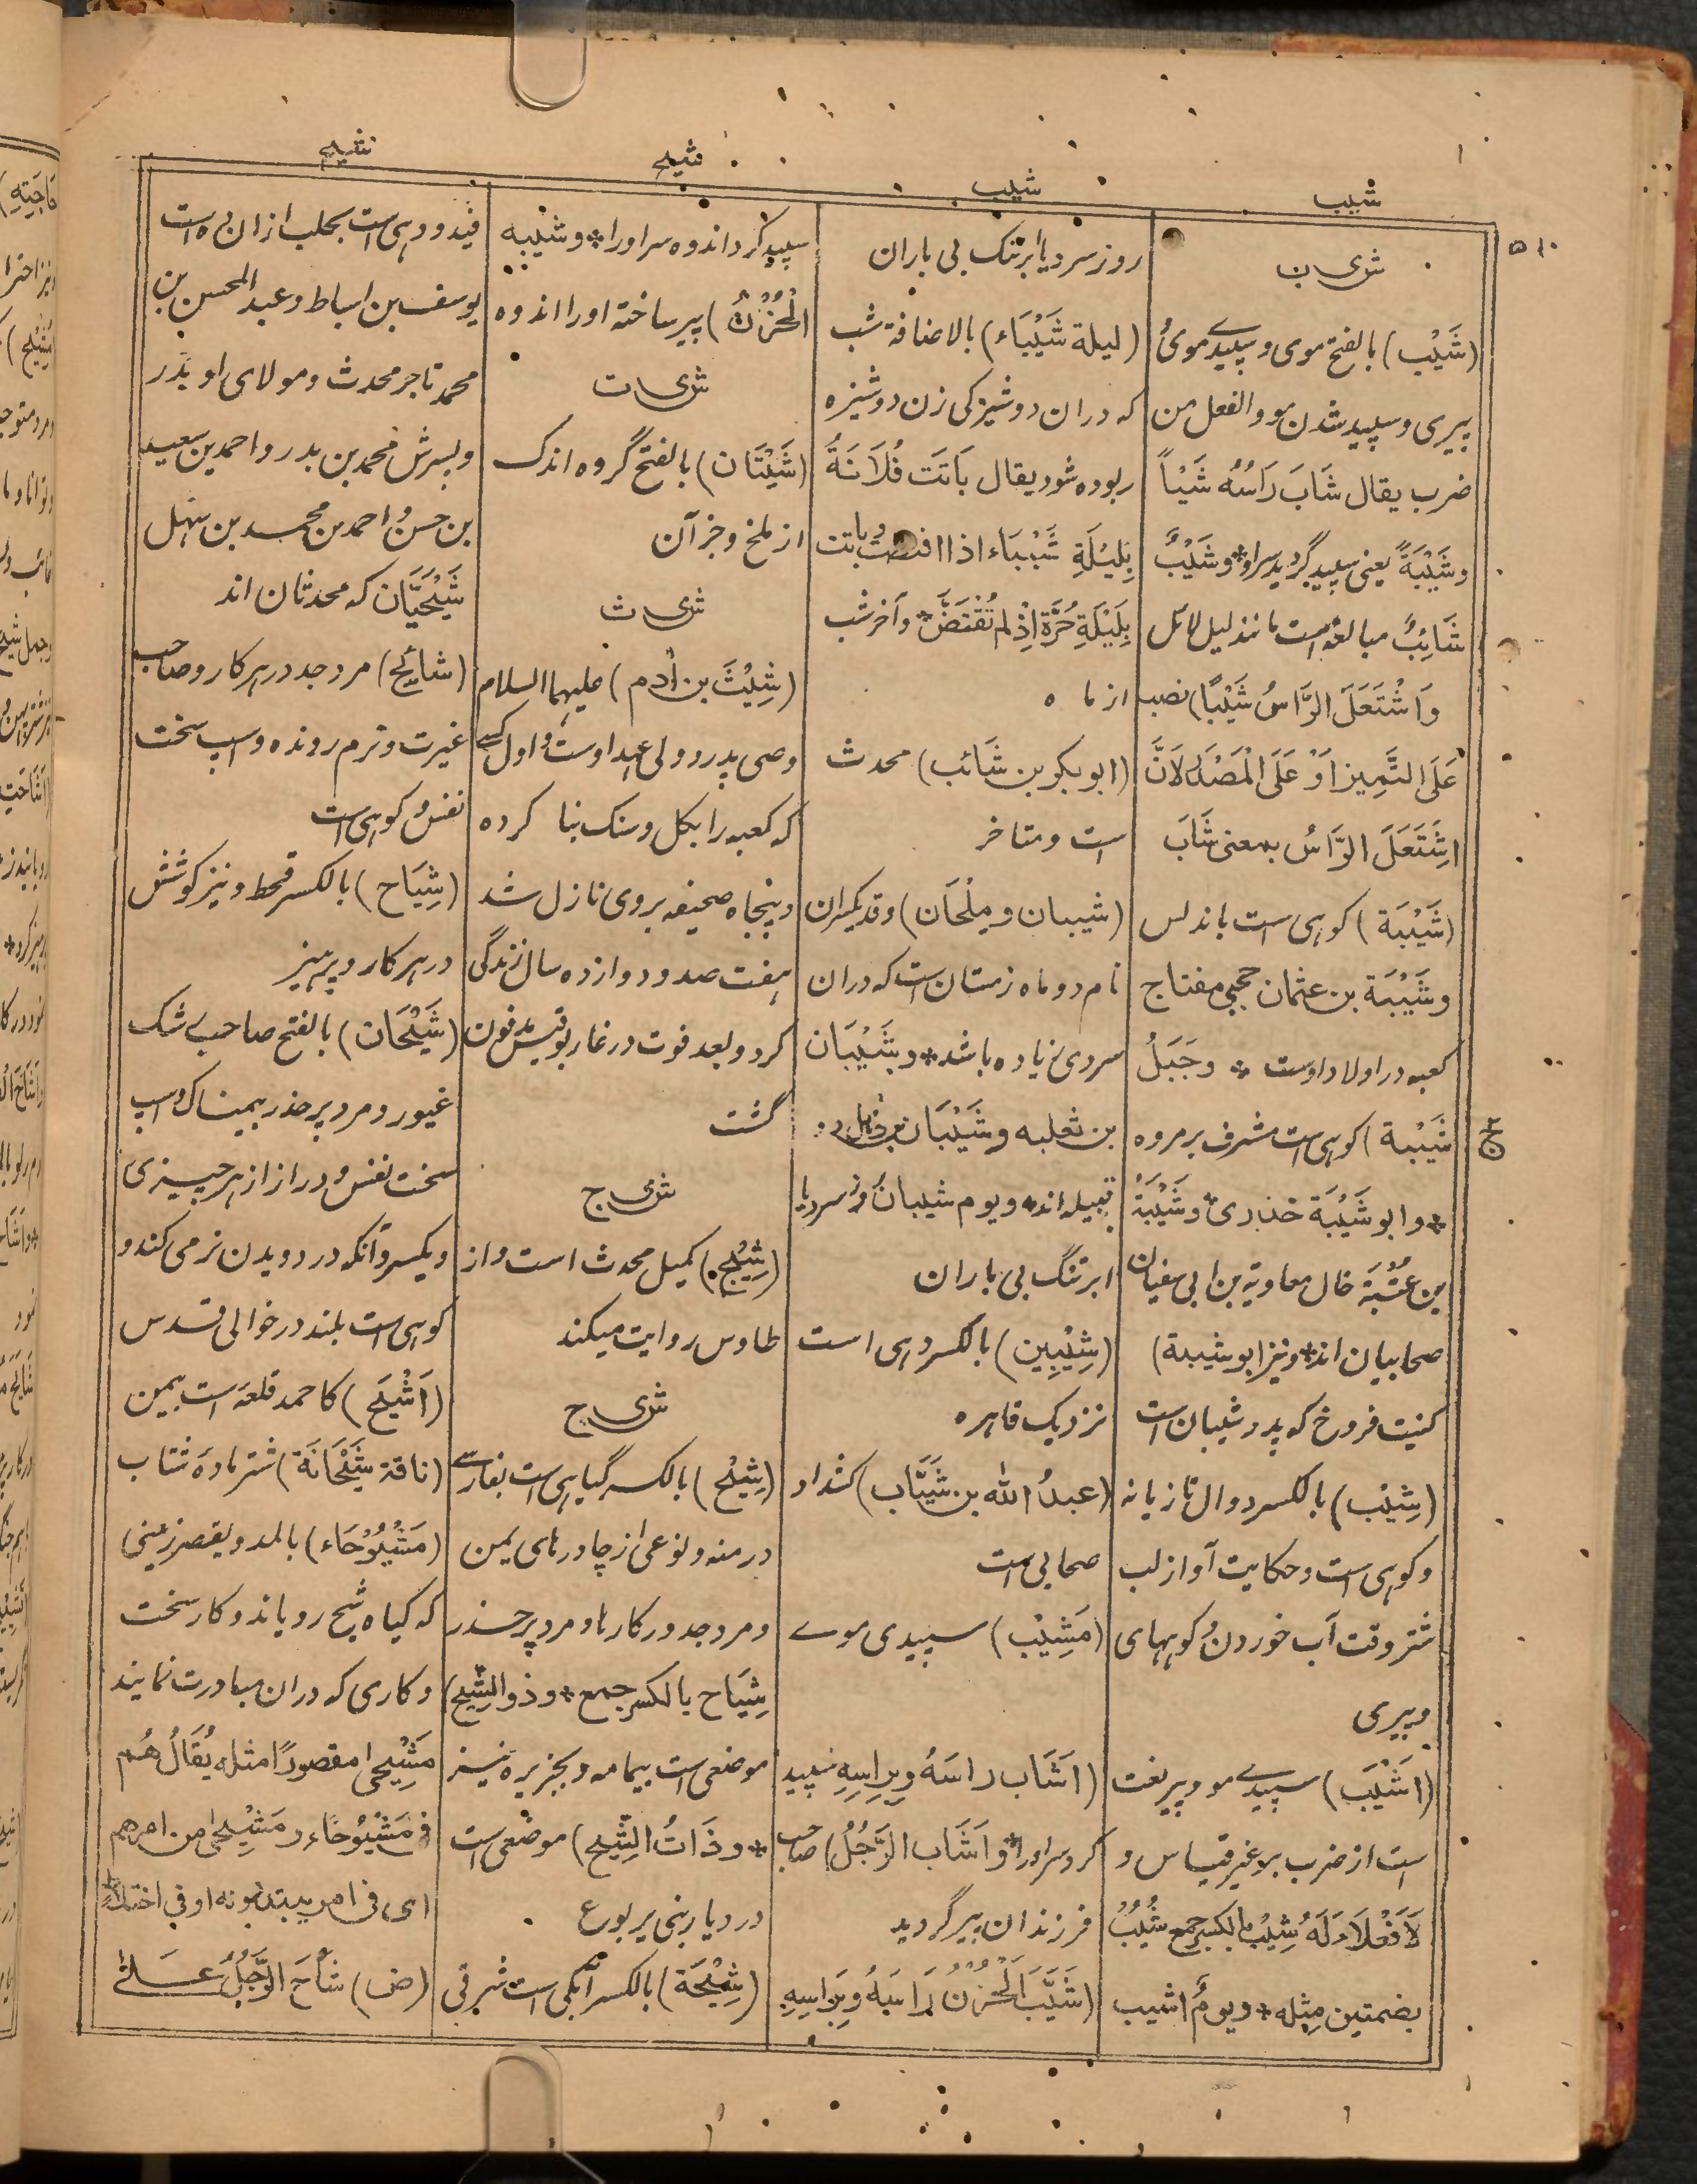 شیب
شیب
شیح
شیح
۵۱۰
ش ی ب
(شَیْب) بالفتح موی و سپیدی موی و
پیری و سپید شدن مو والفعل من
ضرب یقال شَابَ رَاسُهُ شَیْباً
و شَیْبَةً یعنی سپید گردید سر او * و شَیْبٌ
شَائِبٌ مبالغه است مانند لیل لائل
وَاشْتَعَلَ الرَّاسُ شَیْبًا) نصب
عَلَی التَّمِیز اَوْ عَلَی الْمَصْدَر لَانَّ
اِشْتَعَلَ الرَّاسُ بمعنی شَابَ
(شَیْبَة) کوهی است باندلس
وشَیْبَة بن عثمان حجبی مفتاح
کعبه در اولاد اوست * وجَبَلُ
شَیْبة) کوهی است مشرف بر مروه
* وابو شَیْبَة خدری و شَیْبَةُ
بن عُتْبَة خال معاویة بن ابی سفیان
صحابیان اند * و نیز ابو شیبة)
کنیت فروخ که پدر شیبان است
(شِیْب) بالکسر دوال تازیانه
و کوهی است و حکایت آواز لب
شتر وقت آب خوردن و کوههای
و پیری
(اَشْیَب) سپیدی مو و پیر نعت
ست از ضرب بر غیر قیاس و
لَا فَعْلَاءَ لَهُ شِیْب بالکسر جمع شُیُبٌ
بضمتین مِثله * و یومٌ اشیب
روز سرد یا ابر تنک بی باران
(لیلة شَیْبَاء) بالاضافة شب
که دران دوشیزگی زن دوشیزه
ربوده شود یقال بَاتَت فُلَانَةُ
بِلَیْلَةِ شَیْبَاء اذا افتضت و باتت
بِلَیْلَةِ حُرَّة اِذْ لم تُفْتَضَّ * وآخر شب
از ماه
(ابوبکر بن شَائب) محدث
است و متاخر
(شیبان و مِلْحَان) وقد یکسران
نام دو ماه زمستان است که دران
سردی زیاده باشد * و شَیْبَان
بن ثعلبه و شَیْبَان بن ذُهل دو
قبیله اند و یوم شیبان روز سرد با
ابر تنگ بی باران
(شِیْبِین) بالکسر دهی است
نزدیک قاهره
(عبدُ الله بن شَیَّاب) کشداد
صحابی است
(مَشِیْب) سپیدی موے
(اَشَاب راسَهُ وبِراسِهِ سپید
کرد سر او را * و اَشَاب الرَّجُلُ) صاحب
فرزندان پیر گردید
(شَیَّبَ الْحُزْنُ رَاسَهُ وبِرَاسِهِ
سپید کرد اندوه سر او را * وشَیَّبه
الْحُزْنُ) پیر ساخته اورا اندوه
ش ی ت
(شَیْتَان) بالفتح گروه اندک
از ملخ و جز آن
ش ی ث
(شِیْثَ بن اٰدم) علیهما السلام
وصی پدر و ولی عهد اوست و اول کسے
که کعبه را بگل و سنگ بنا کرده
و پنجاه صحیفه بروی نازل شد
هفت صد و دوازده سال زندگی
کرد و بعد فوت در غار بوقبیس مدفون
گشت
ش ی ج
(شِیْج) کمیل محدث است و از
طاوس روایت میکند
ش ی ح
(شِیْح) بالکسر گیاهی است بفارسے
درمنه و نوعی از چادرهای یمن
و مرد جد در کارها و مرد پرحذر
شِیَاح بالکسر جمع * و ذوالشِّیح)
موضعی است بیمامه و بجزیره نیز
* وذَاتُ الشِّیح) موضعی است
در دیار بنی یربوع
(شِیْحَة) بالکسر آبکی است شرقی
فید و دهی است بحلب ازان ده است
یوسف بن اسباط و عبد المحسن بن
محمد تاجر محدث و مولای او بدر
و پسرش محمد بن بدر و احمد بن سعید
بن حسن و احمد بن محمد بن سهل
شَیْحِیَّان که محدثان اند
(شائِح) مرد جد در هر کار و صاحب
غیرت و نرم رونده و اسپ سخت
نفس و کوهی است
(شِیَاح) بالکسر قحط و نیز کوشش
در هر کار و پرهیز
(شَیْحَان) بالفتح صاحب شک
غیور و مرد پر حذر بیمناک و اسپ
سخت نفس و دراز از هر چیزی
و یکسر و آنکه در دویدن نرمی کند و
کوهی است بلند در حوالی قدس
(اَشْیَح) کاحمد قلعه است بیمن
(ناقة شَیْحَانَة) شتر ماده شتاب
(مَشْیُوْحَاء) بالمد و یقصر زمینی
که گیاه شیح رویاند و کار سخت
و کاری که دران مبادرت نمایند
مَشِیْحی مقصورًا مثله یُقَالُ هُم
فی مَشْیُوحَاء و مَشِیْحی من امرهم
ای فی امر یبتدرونه او فی اختلاط
(ض) شَاحَ الرَّجُلُ عَلٰی